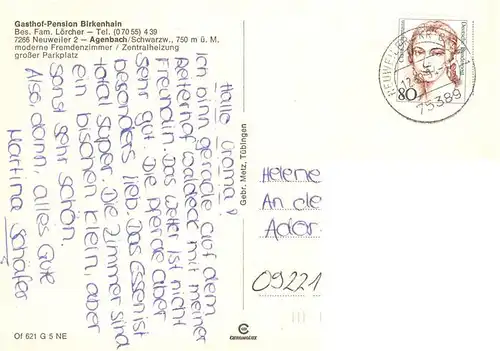 Gasthof-Pension Birkenhain
Bes. Fam. Lörcher – Tel. (0 70 55) 4 39
7265 Neuweiler 2 – Agenbach/Schwarzw., 750 m ü. M.
moderne Fremdenzimmer / Zentralheizung
großer Parkplatz
Hallo Oroma!
Ich binn gerade auf dem
Reiterhof Waldeck mit meiner
Freundin. Das Wetter ist nicht
Sehr gut. Die Pferde aber
besonders lieb. Das Essen ist
total super. Die Zimmer sind
ein bischen klein, aber
sonst sehr schön.
Also, dann, alles Gute
Martina Schäfer
Of 621 G 5 NE
Gebr. Metz, Tübingen
80
75389
Helene
An de
Ador
09221